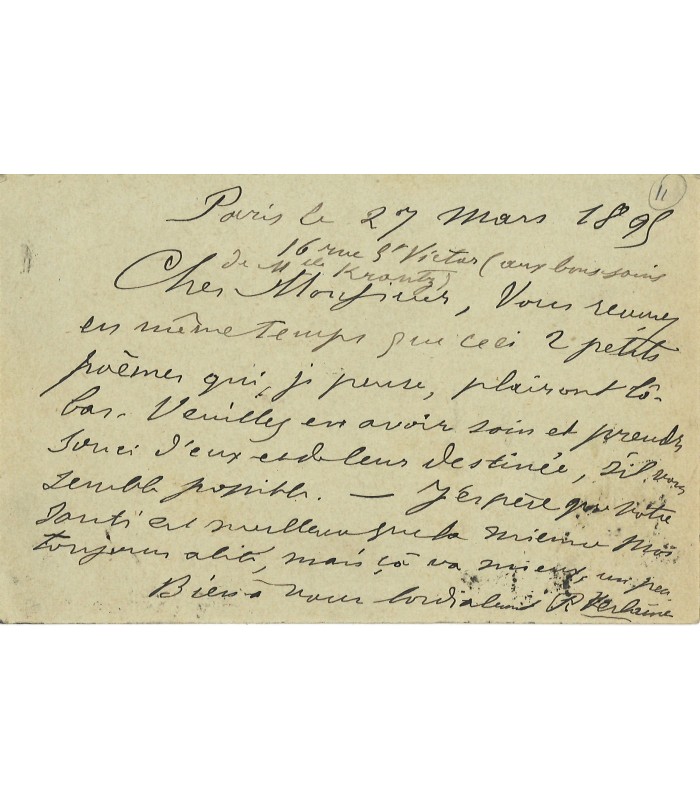 11
Paris le 27 mars 1895
16 rue St Victor (aux bons soins
de Mlle Krantz)
Cher Monsieur, Vous recevrez
en même temps que ceci 2 petits
poèmes qui, je pense, plairont là-
bas. Veuillez en avoir soin et prendre
souci d'eux et de leur destinée, s'il vous
semble possible. — J'espère que votre
santé est meilleure que la mienne. Moi
toujours alité, mais çà va mieux, un peu
Bien à vous cordialement P. Verlaine